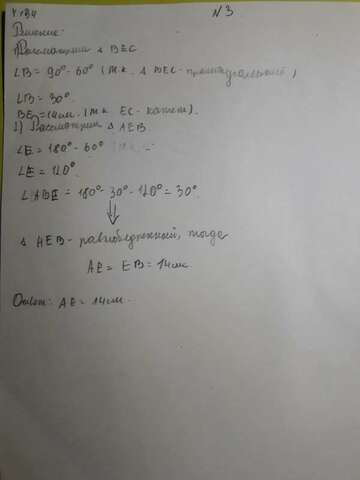 №3
Решение:
1) Рассмотрим Δ BEC
∠B = 90° - 60° (т.к. Δ BEC - прямоугольный)
∠B = 30°.
BE = 14см. (т.к. EC - катет).
2) Рассмотрим Δ AEB.
∠E = 180° - 60°
∠E = 120°.
∠ABE = 180° - 30° - 120° = 30°.
⇓
Δ AEB - равнобедренный, тогда
AE = EB = 14см.
Ответ: AE = 14см.